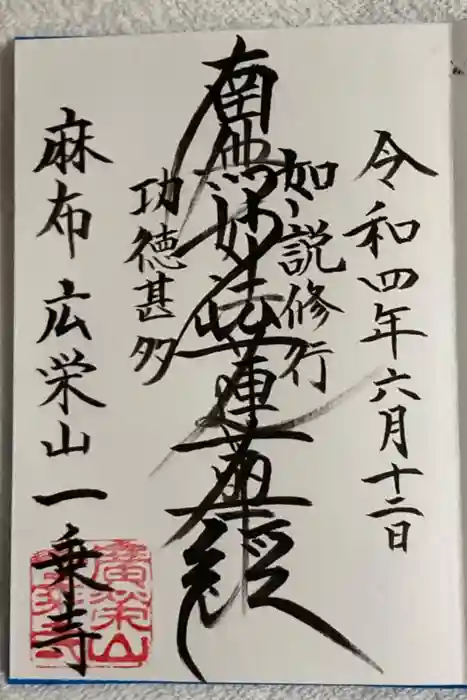 令和四年六月十二日
如説修行
南無妙法蓮華経
功徳甚多
麻布 広栄山 一乗寺
廣栄山
一乗寺